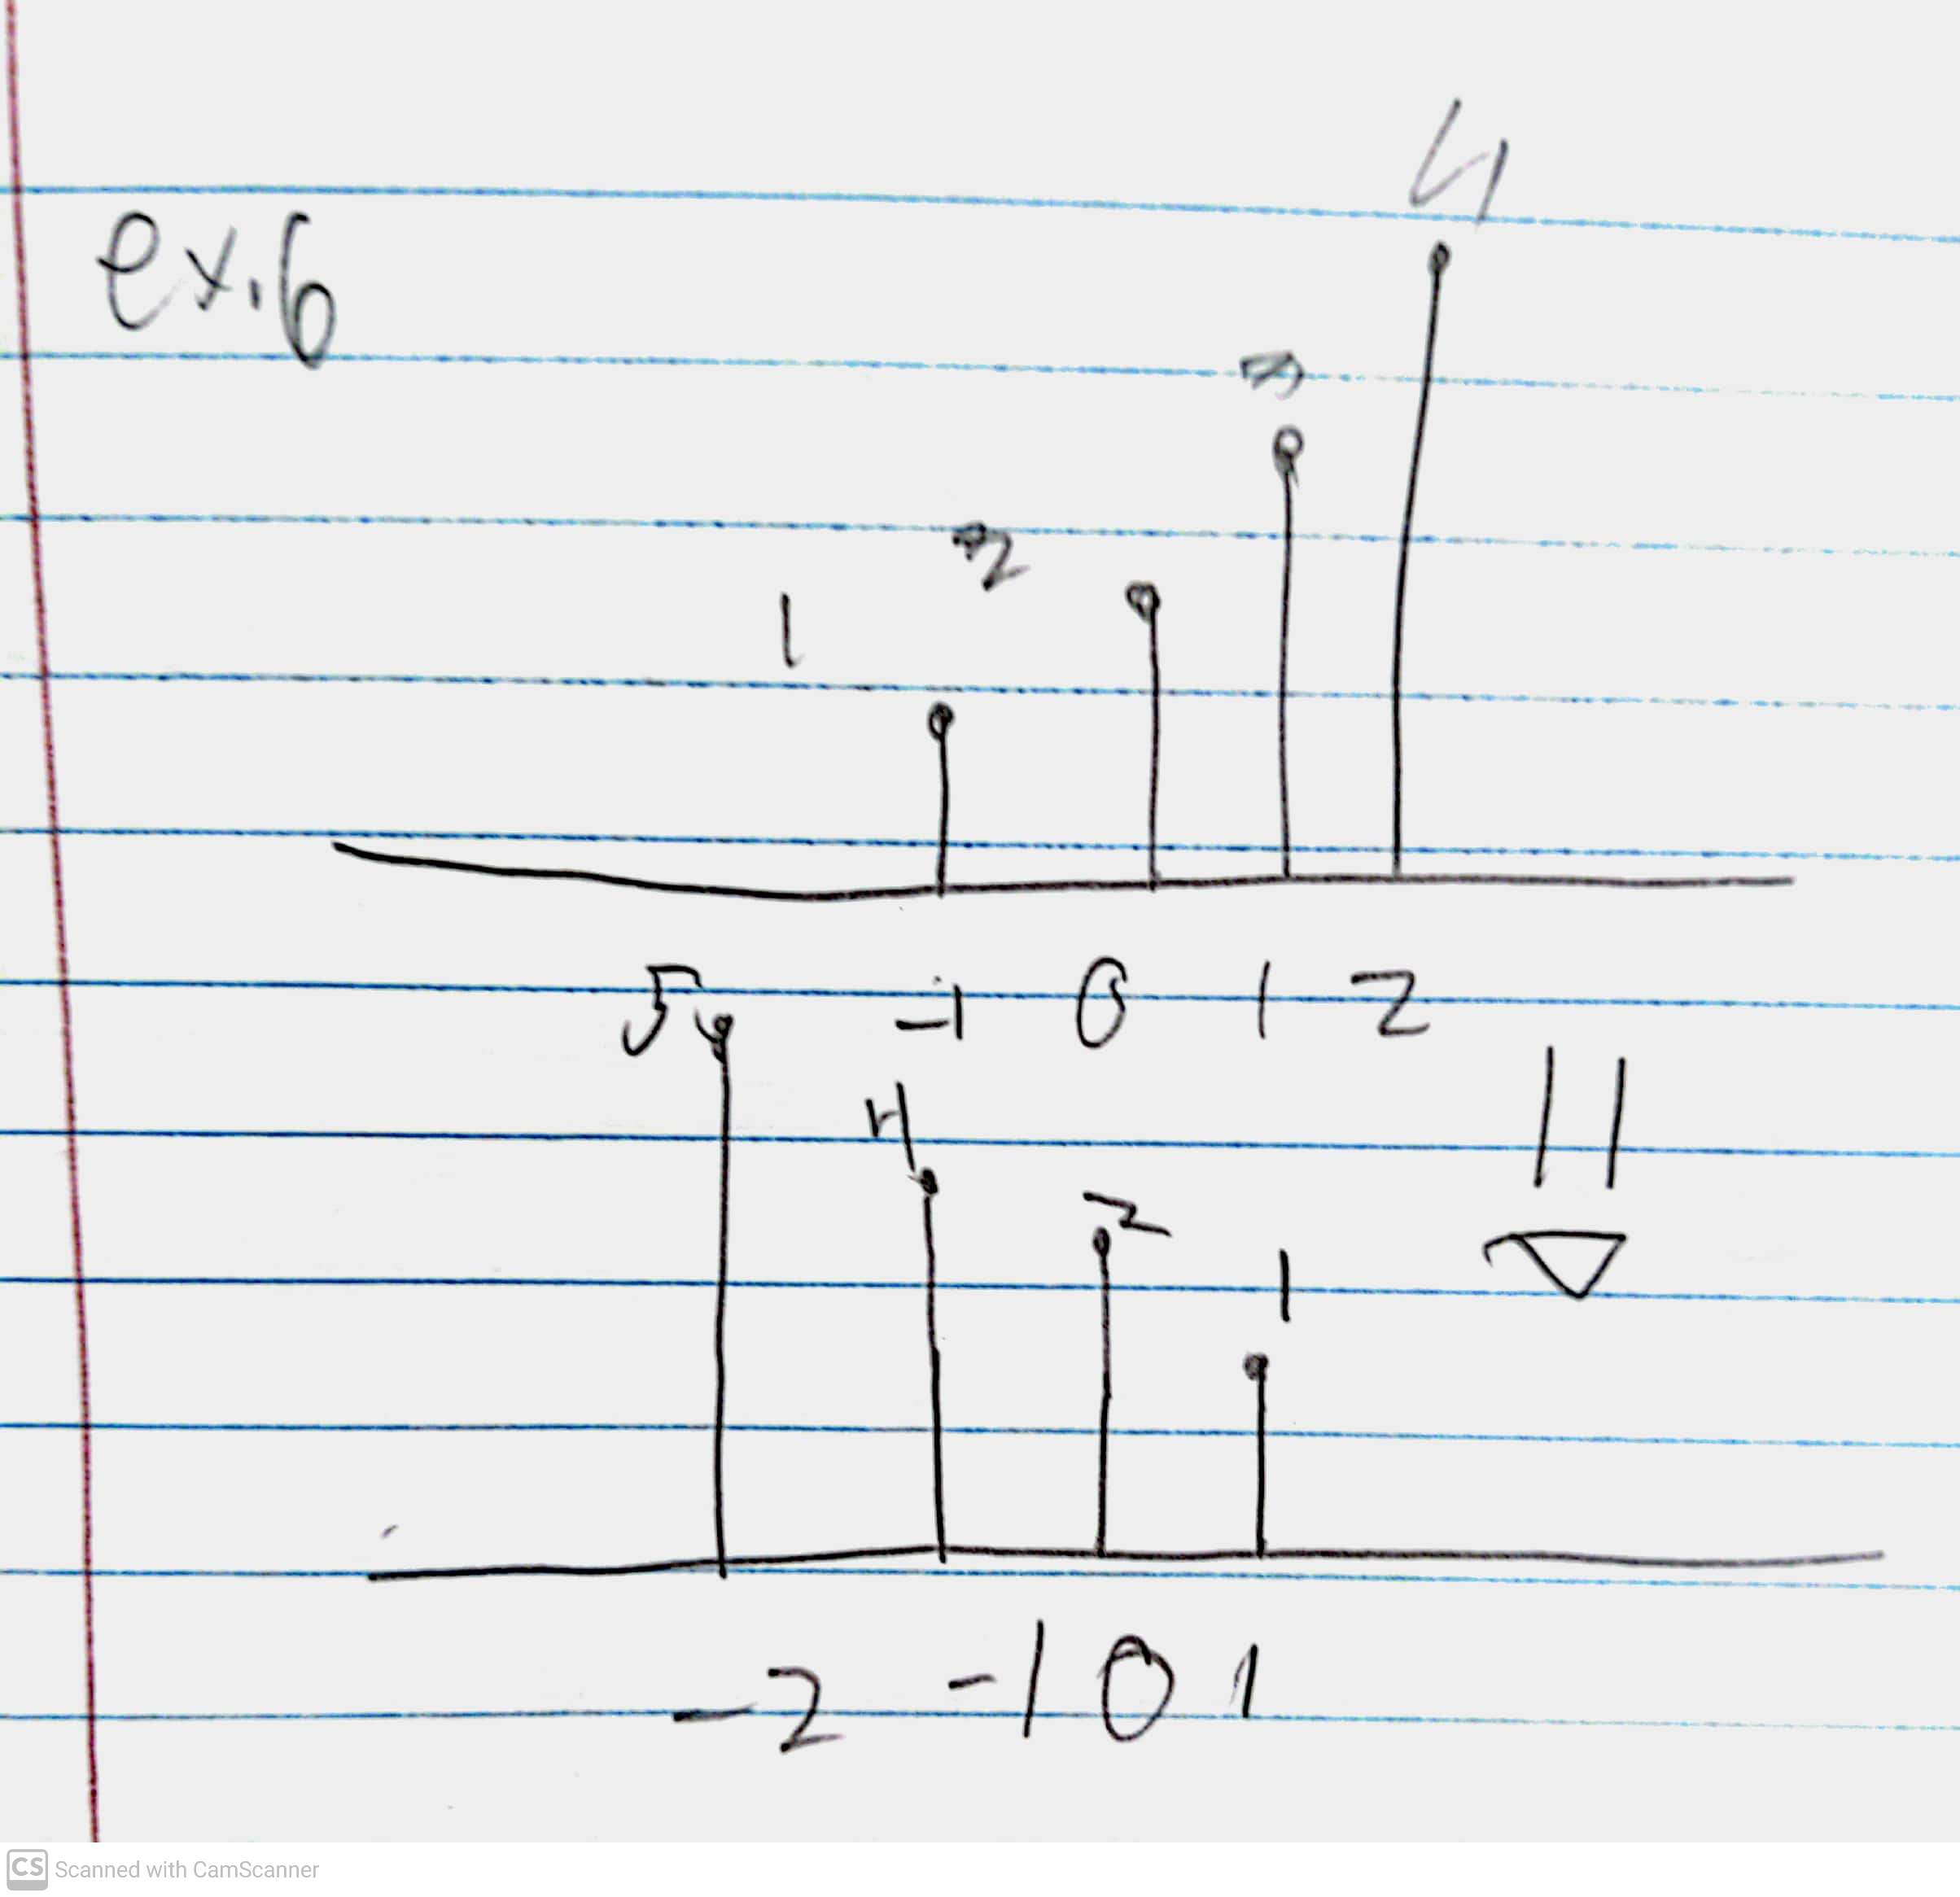 4
ex.6
3
2
1
5 -1 0 1 2
4
2
1
-2 -1 0 1
CS Scanned with CamScanner